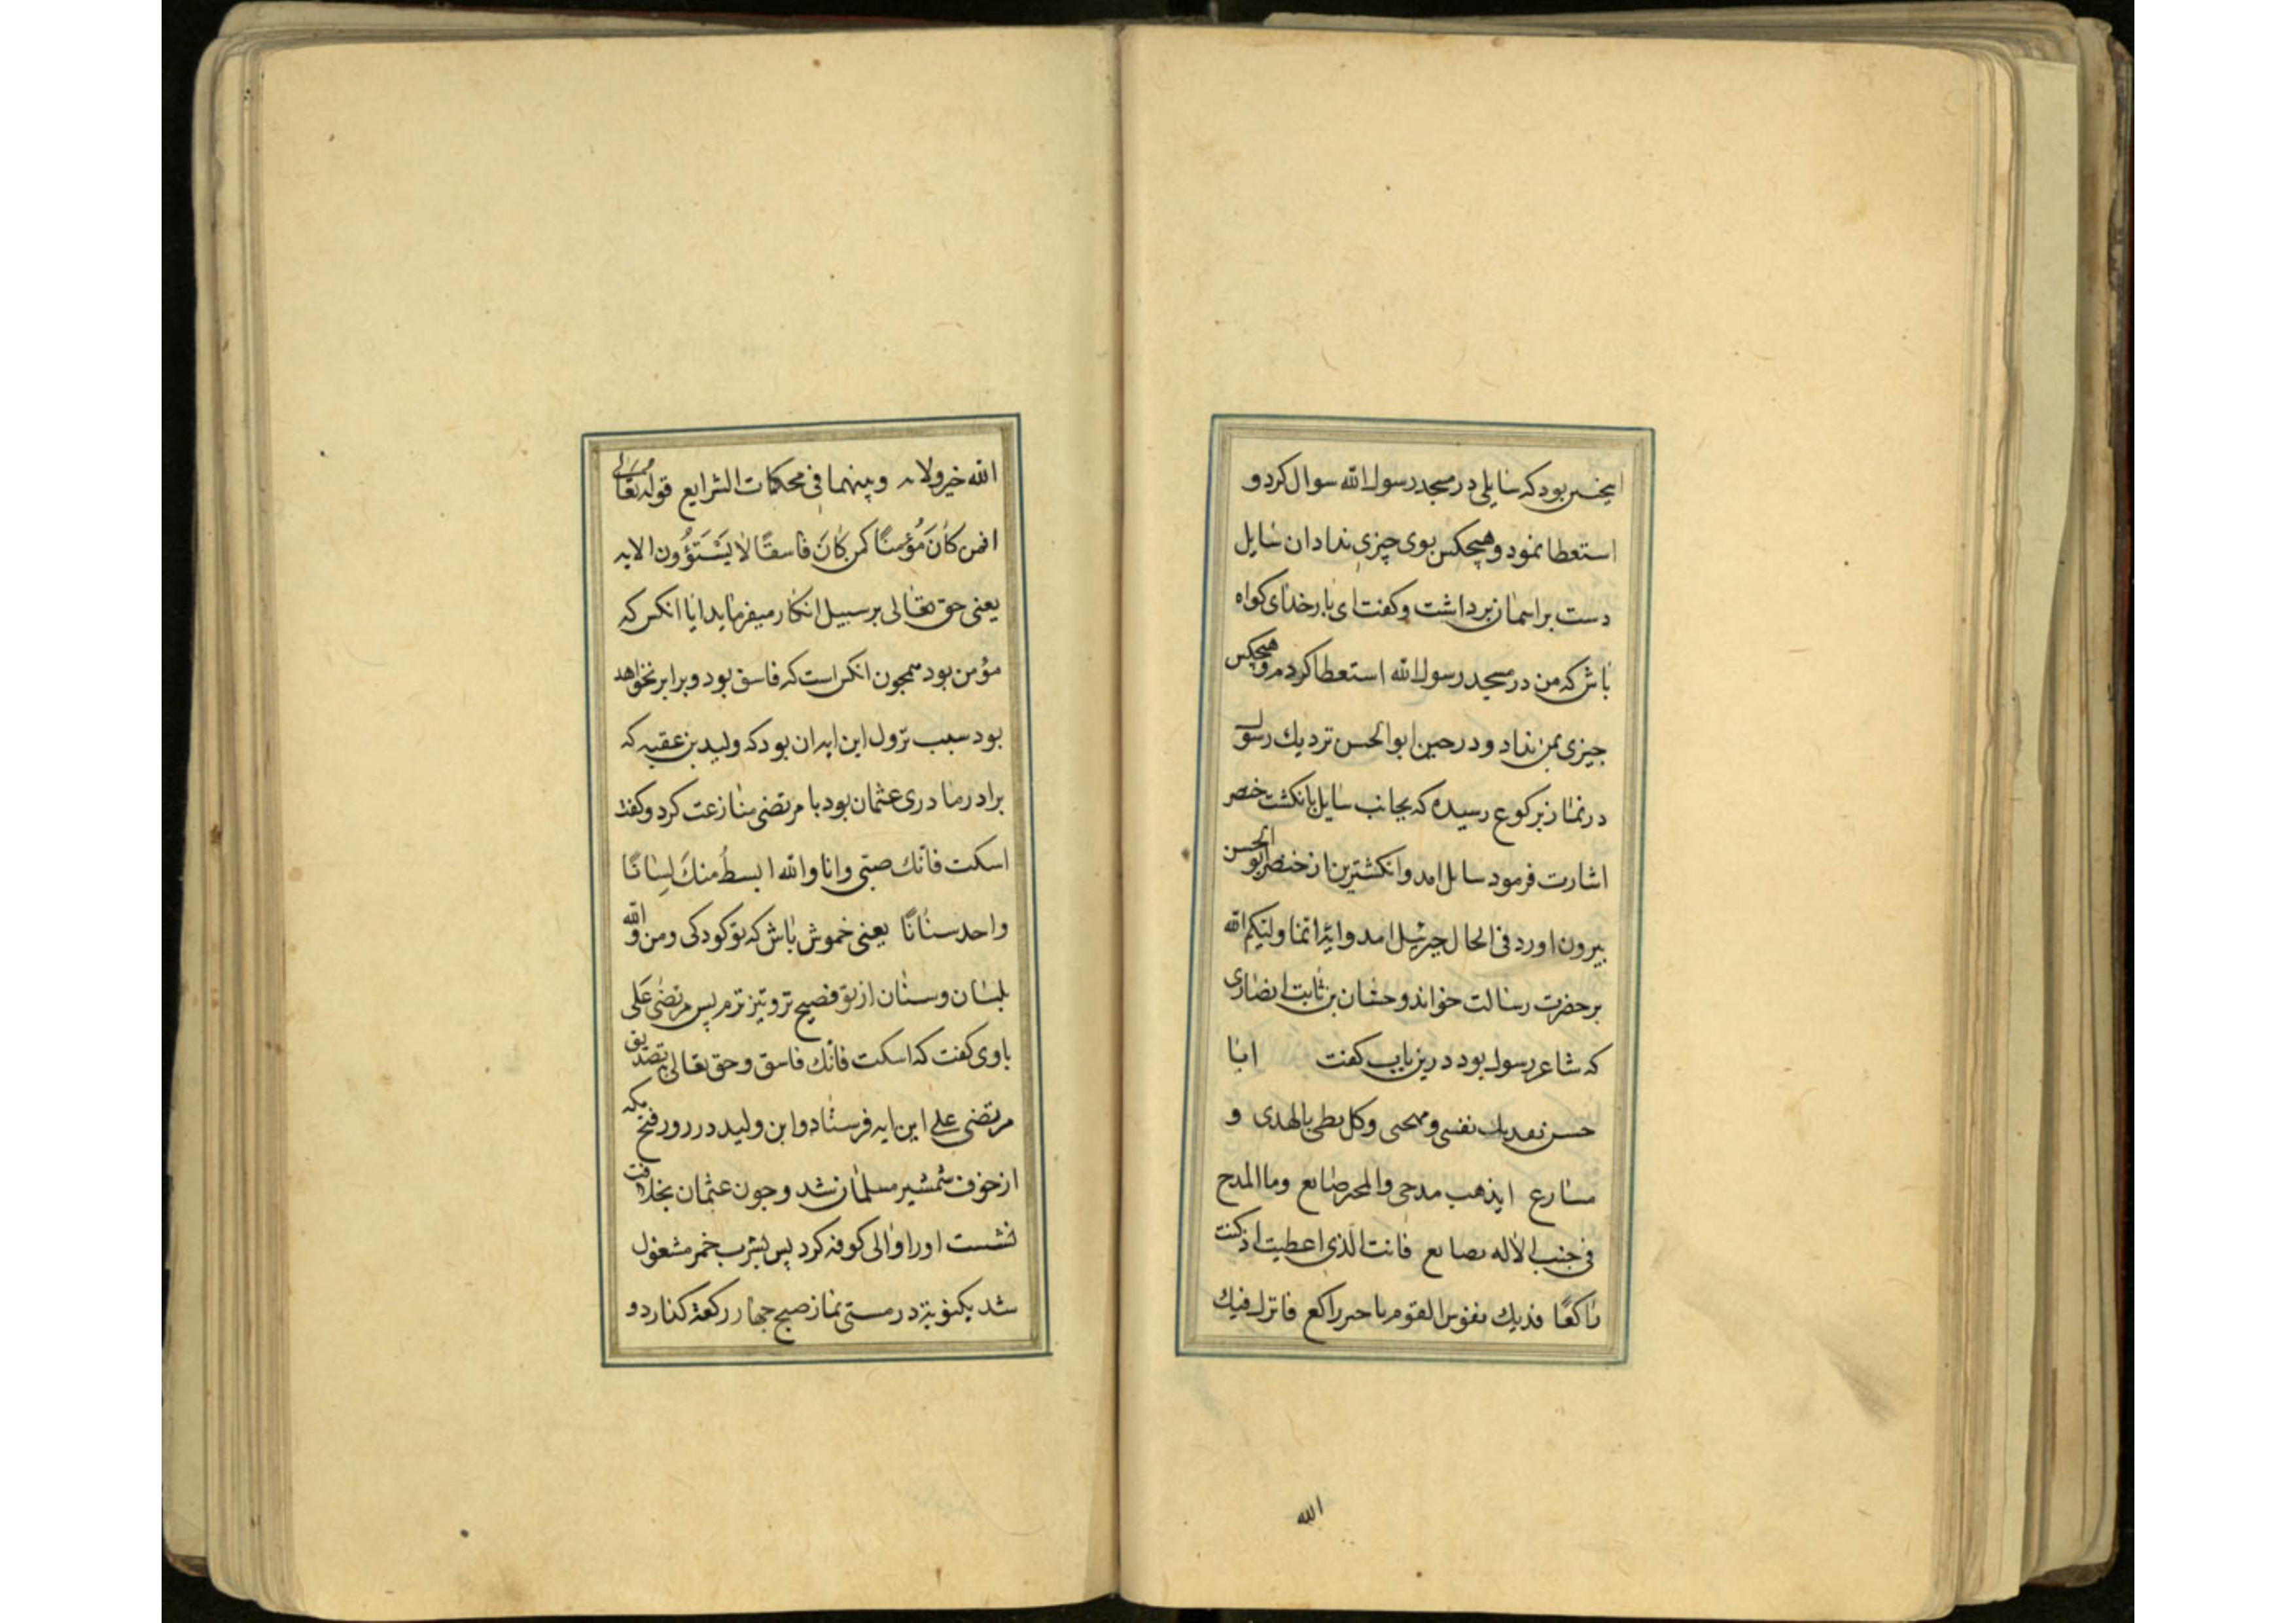 ایخبر بود که سایلی در مسجد رسول الله سوال کرد و
استعطا نمود و هیچکس بوی چیزی نداد ان سایل
دست بر اسمان برداشت و کفت ای بار خدای کواه
باش که من در مسجد رسول الله استعطا کردم و هیچکس
جیزی بمن نداد و در حین ابو الحسن نزدیك رسول
در نماز برکوع رسیده که بجانب سایل بانکشت خنصر
اشارت فرمود سایل امد و انکشترین از خنصر ابو الحسن
بیرون اورد فی الحال جبرئیل امد و ایة انما ولیکم الله
بر حضرت رسالت خواند و حسّان بن ثابت انصاری
که شاعر رسول بود درین باب کفت ابا
حسن تفدیك نفسی و مهجتی وکل بطی بالهدی و
مسارع ایذهب مدحی والمحبر ضایع وما المدح
فی جنب الاله بضایع فانت الّذی اعطیت اذ کنت
راکعًا فدیك نفوس القوم یا خیر راکع فانزل فیك
الله
الله خیر ولایه وبینهما فی محکمات الشرایع قوله تعالی
افمن کَانَ مُؤْمِنًا کمن کَانَ فاسقًا لا یَسْتَوُون الایه
یعنی حق تعالی بر سبیل انکار میفرماید ایا انکس که
مؤمن بود همجون انکس است که فاسق بود و برابر نخواهد
بود سبب نزول این ایه ان بود که ولید بن عقبه که
برادر مادری عثمان بود با مرتضی منازعت کرد و کفت
اسکت فانّك صبیّ وانا والله ابسطُ منكَ لِسَانًا
واحد سنانًا یعنی خموش باش که تو کودکی و من و الله
بلسان و سنان از تو فصیح تر و تیز ترم پس مرتضی عَلی
با وی کفت که اسکت فانّك فاسق و حق تعالی بتصدیق
مرتضی علی این ایه فرستاد و ابن ولید در روز فتح مکه
از خوف شمشیر مسلمان شد و جون عثمان بخلافت
نشست اورا والی کوفه کرد پس بشرب خمر مشغول
شد یکنوبة در مستی نماز صبح جهار رکعة کذارد و